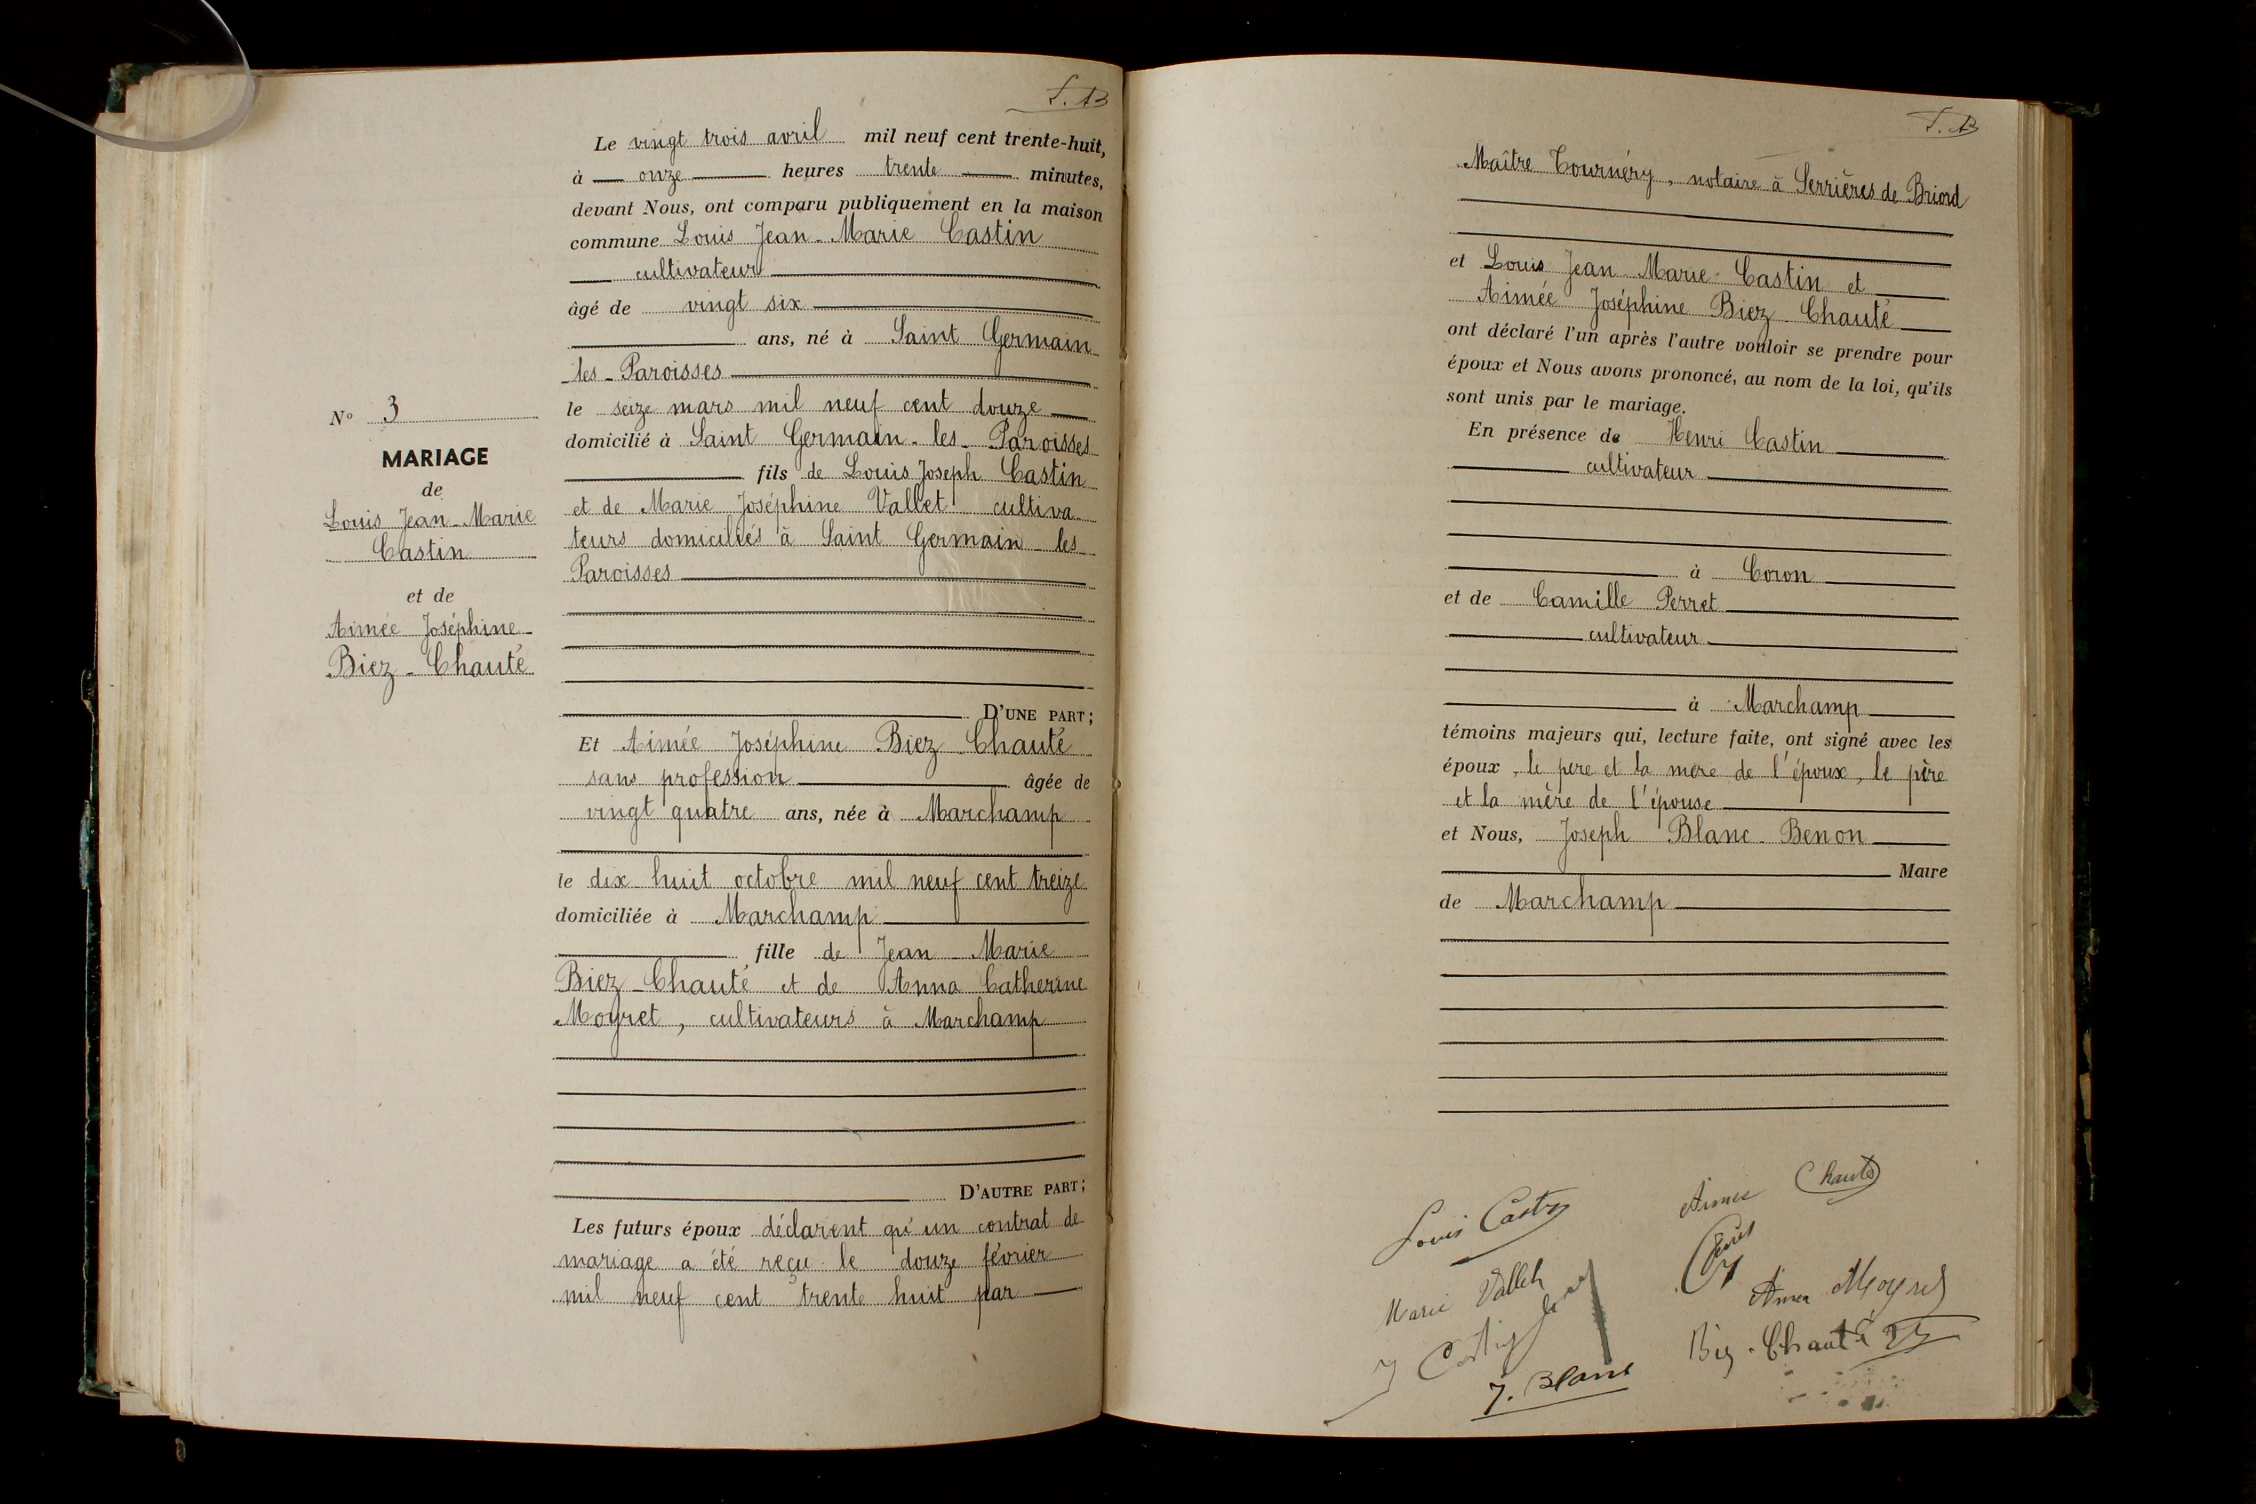 J. B
Le vingt trois avril mil neuf cent trente-huit,
à onze heures trente minutes,
devant Nous, ont comparu publiquement en la maison
commune Louis Jean-Marie Castin
cultivateur
âgé de vingt six
ans, né à Saint Germain
les-Paroisses
le seize mars mil neuf cent douze
domicilié à Saint Germain-les-Paroisses
fils de Louis Joseph Castin
et de Marie Joséphine Vallet cultiva-
teurs domiciliés à Saint Germain-les
Paroisses
D'UNE PART;
Et Aimée Joséphine Biez-Chauté
sans profession âgée de
vingt quatre ans, née à Marchamp
le dix-huit octobre mil neuf cent treize
domiciliée à Marchamp
fille de Jean-Marie
Biez-Chauté et de Anna Catherine
Moyret, cultivateurs à Marchamp
D'AUTRE PART;
Les futurs époux déclarent qu'un contrat de
mariage a été reçu le douze février
mil neuf cent trente huit par
N° 3
MARIAGE
de
Louis Jean-Marie
Castin
et de
Aimée Joséphine
Biez-Chauté
J. B
Maître Tournéry, notaire à Serrières de Briord
et Louis Jean-Marie Castin et
Aimée Joséphine Biez-Chauté
ont déclaré l'un après l'autre vouloir se prendre pour
époux et Nous avons prononcé, au nom de la loi, qu'ils
sont unis par le mariage.
En présence de Henri Castin
cultivateur
à Coron
et de Camille Perret
cultivateur
à Marchamp
témoins majeurs qui, lecture faite, ont signé avec les
époux, le père et la mère de l'époux, le père
et la mère de l'épouse
et Nous, Joseph Blanc-Benon
Maire
de Marchamp
Louis Castin
Aimée Chauté
Marie Vallet
Anna Moyret
Castin
Biez-Chauté
J. Blanc